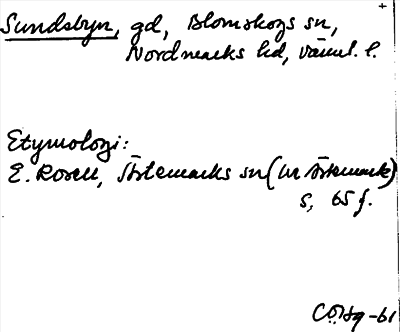 Sundsbyn, gd, Blomskogs sn,
Nordmarks hd, Värml. l.
Etymologi:
E. Rosell, Ärtemarks sn (ur Ärtemark)
s, 65 f.